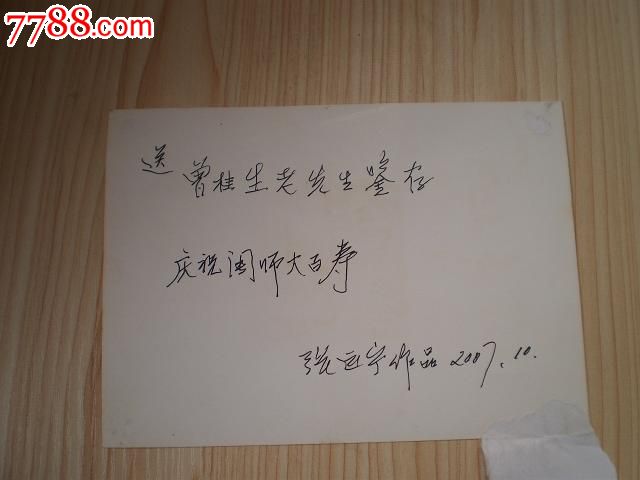 7788.com
送 曾桂生老先生鉴存
庆祝闽师大百寿
张运宁作品 2007.10.